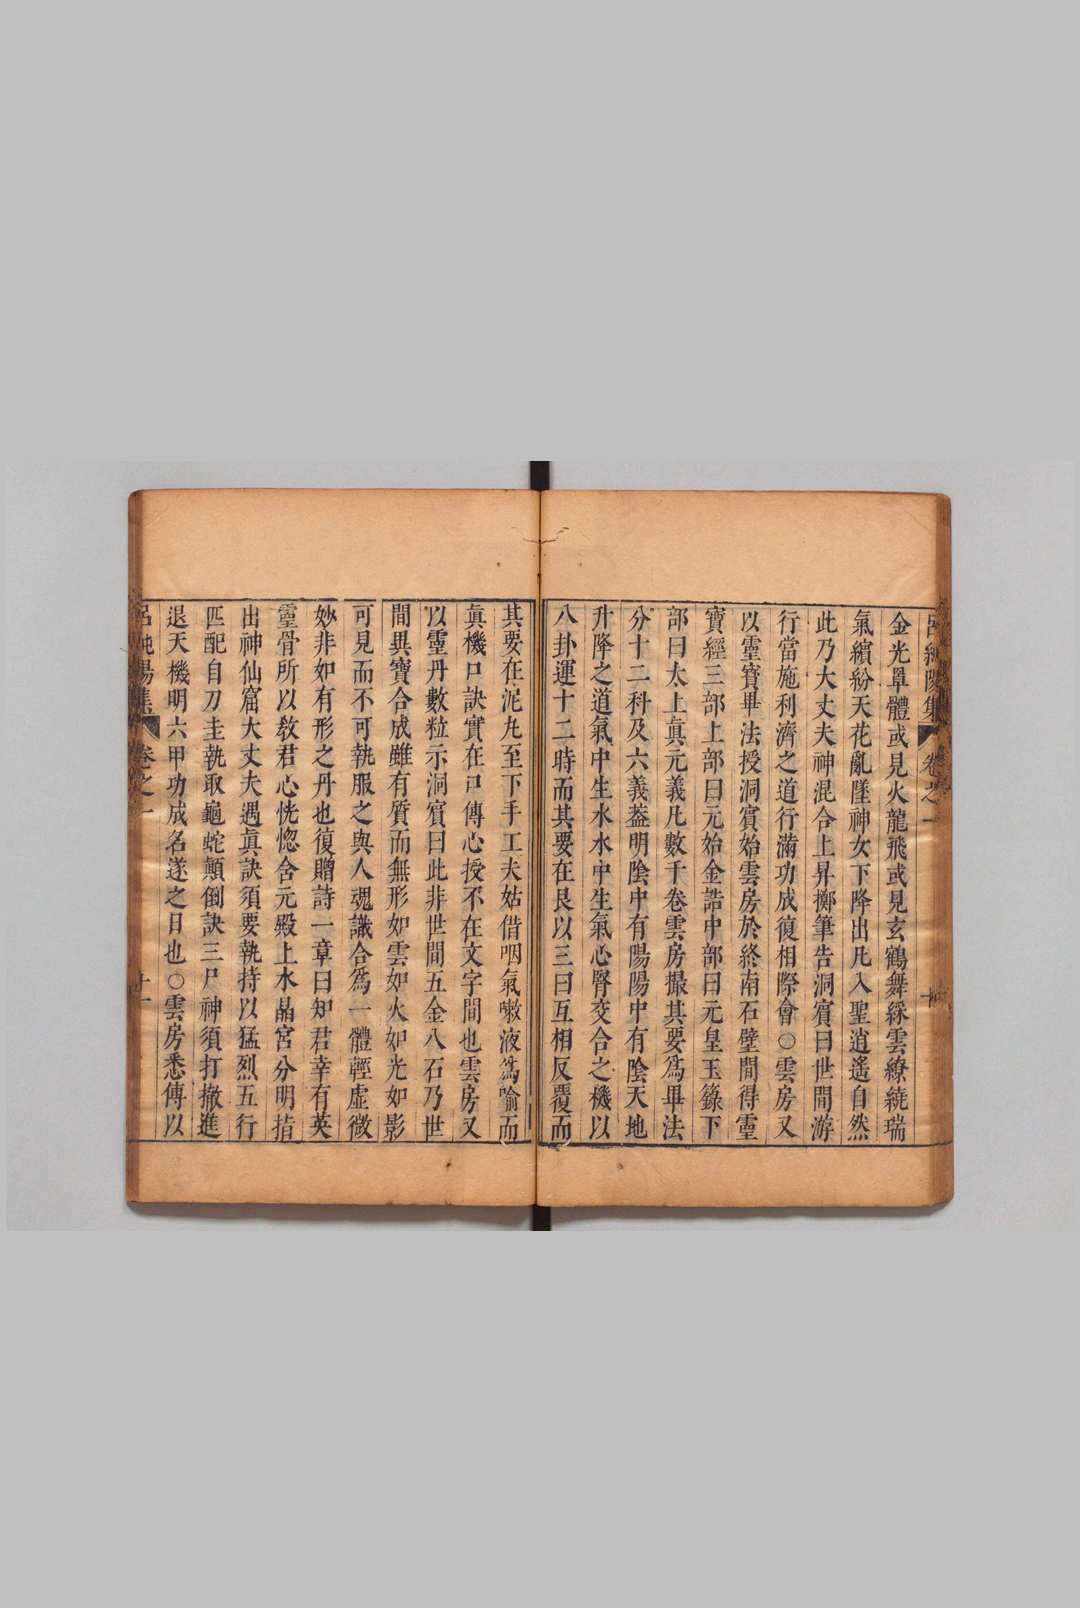 呂純陽集 卷之一 十
金光罩體或見火龍飛或見玄鶴舞綵雲繚繞瑞
氣繽紛天花亂墜神女下降出凡入聖逍遙自然
此乃大丈夫神混合上昇擲筆告洞賓曰世間游
行當施利濟之道行滿功成復相際會○雲房又
以靈寶畢法授洞賓始雲房於終南石壁間得靈
寶經三部上部曰元始金誥中部曰元皇玉籙下
部曰太上眞元義凡數千卷雲房撮其要爲畢法
分十二科及六義葢明陰中有陽陽中有陰天地
升降之道氣中生水水中生氣心腎交合之機以
八卦運十二時而其要在艮以三曰互相反覆而
其要在泥丸至下手工夫姑借咽氣嗽液爲喻而
眞機口訣實在口傳心授不在文字間也雲房又
以靈丹數粒示洞賓曰此非世間五金八石乃世
間異寶合成雖有質而無形如雲如火如光如影
可見而不可執服之與人魂識合爲一體輕虛微
妙非如有形之丹也復贈詩一章曰知君幸有英
靈骨所以敎君心恍惚含元殿上水晶宮分明指
出神仙窟大丈夫遇眞訣須要執持以猛烈五行
匹配自刀圭執取龜蛇顚倒訣三尸神須打撤進
退天機明六甲功成名遂之日也○雲房悉傳以
呂純陽集 卷之一 十一